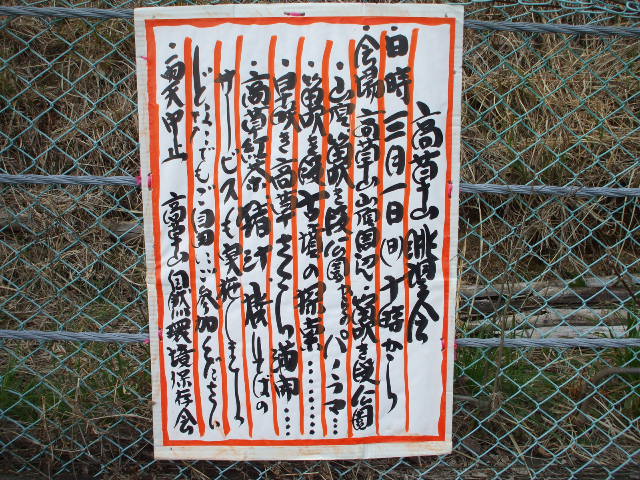 高草山 眺望会
・日時 三月一日(日)十時から
・会場 高草山山腹周辺・笛吹き段公園
・山腹、笛吹き段公園からのパノラマ…
・笛吹き段古墳の探索………
・早咲き高草ざくら満開……
・高草紅茶や猪汁、勝しそばの
サービスも実施します
・どなたでもご自由に参加ください
・雨天中止 高草山自然環境保存会